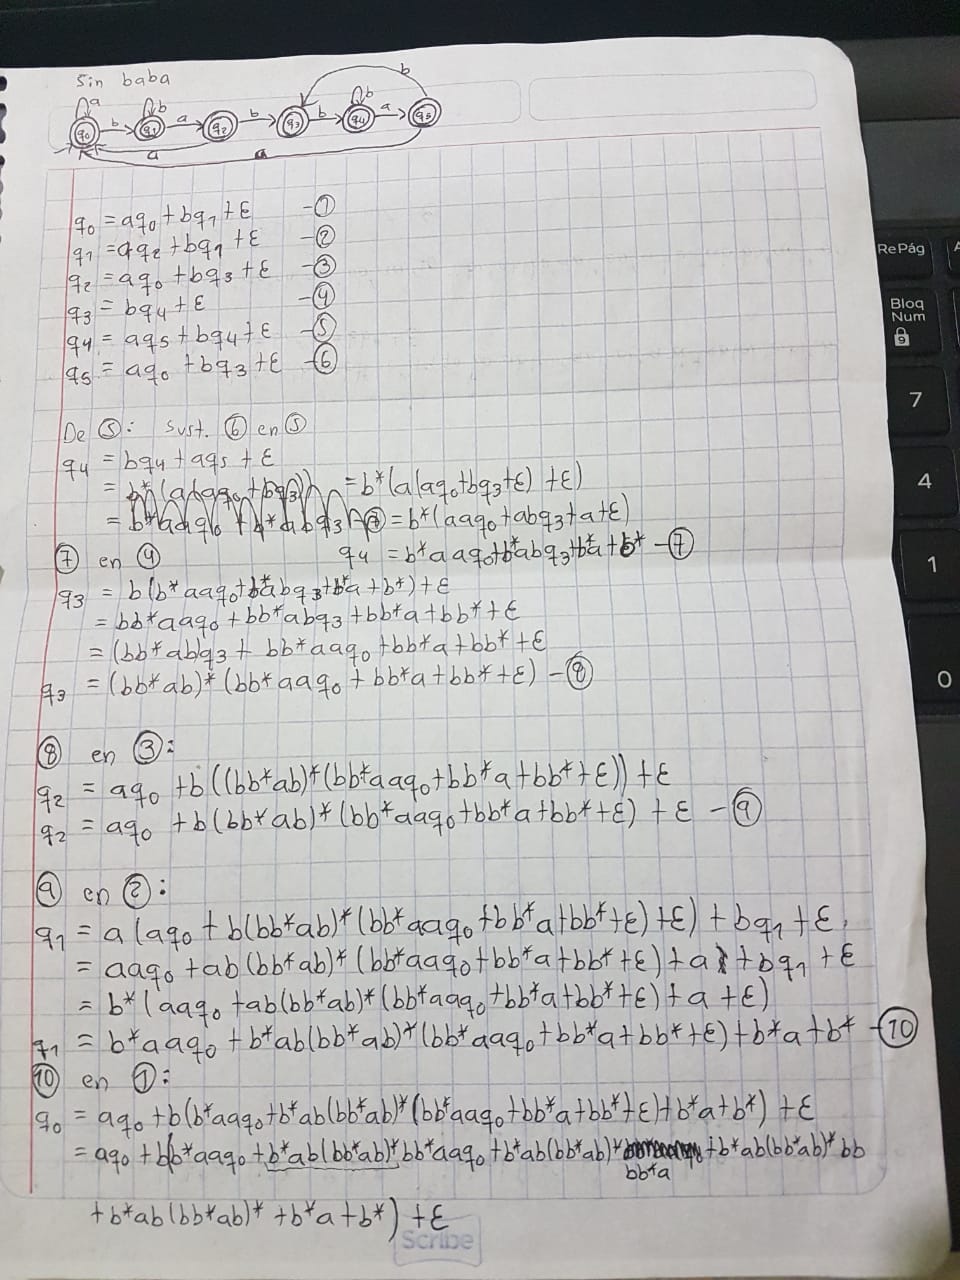 Sin baba
a b b
q0 b q1 a q2 b q3 b q4 a q5
a a
b
q0 = aq0 + bq1 + ε -①
q1 = aq2 + bq1 + ε -②
q2 = aq0 + bq3 + ε -③
q3 = bq4 + ε -④
q4 = aq5 + bq4 + ε -⑤
q5 = aq0 + bq3 + ε -⑥
De ⑤: sust. ⑥ en ⑤
q4 = bq4 + aq5 + ε
= b*(a(aq0+bq3+ε) + ε)
= b*(aaq0+abq3+a+ε)
⑦ en ④ q4 = b*aaq0+b*abq3+b*a+b* -⑦
q3 = b(b*aaq0+b*abq3+b*a+b*)+ε
= bb*aaq0 + bb*abq3 + bb*a + bb* + ε
= (bb*abq3 + bb*aaq0 + bb*a + bb* + ε
q3 = (bb*ab)*(bb*aaq0 + bb*a + bb* + ε) -⑧
⑧ en ③:
q2 = aq0 + b((bb*ab)*(bb*aaq0+bb*a+bb*+ε)) + ε
q2 = aq0 + b(bb*ab)*(bb*aaq0+bb*a+bb*+ε) + ε -⑨
⑨ en ②:
q1 = a(aq0 + b(bb*ab)*(bb*aaq0+bb*a+bb*+ε)+ε) + bq1 + ε
= aaq0 + ab(bb*ab)*(bb*aaq0+bb*a+bb*+ε) + a + bq1 + ε
= b*(aaq0 + ab(bb*ab)*(bb*aaq0+bb*a+bb*+ε) + a + ε)
q1 = b*aaq0 + b*ab(bb*ab)*(bb*aaq0+bb*a+bb*+ε)+b*a+b* -⑩
⑩ en ①:
q0 = aq0 + b(b*aaq0+b*ab(bb*ab)*(bb*aaq0+bb*a+bb*+ε)+b*a+b*) + ε
= aq0 + b(b*aaq0 + b*ab(bb*ab)*bb*aaq0 + b*ab(bb*ab)* bb*a + b*ab(bb*ab)*bb
+ b*ab(bb*ab)* + b*a + b*) + ε
Scribe
RePág
Bloq
Num
9
7
4
1
0